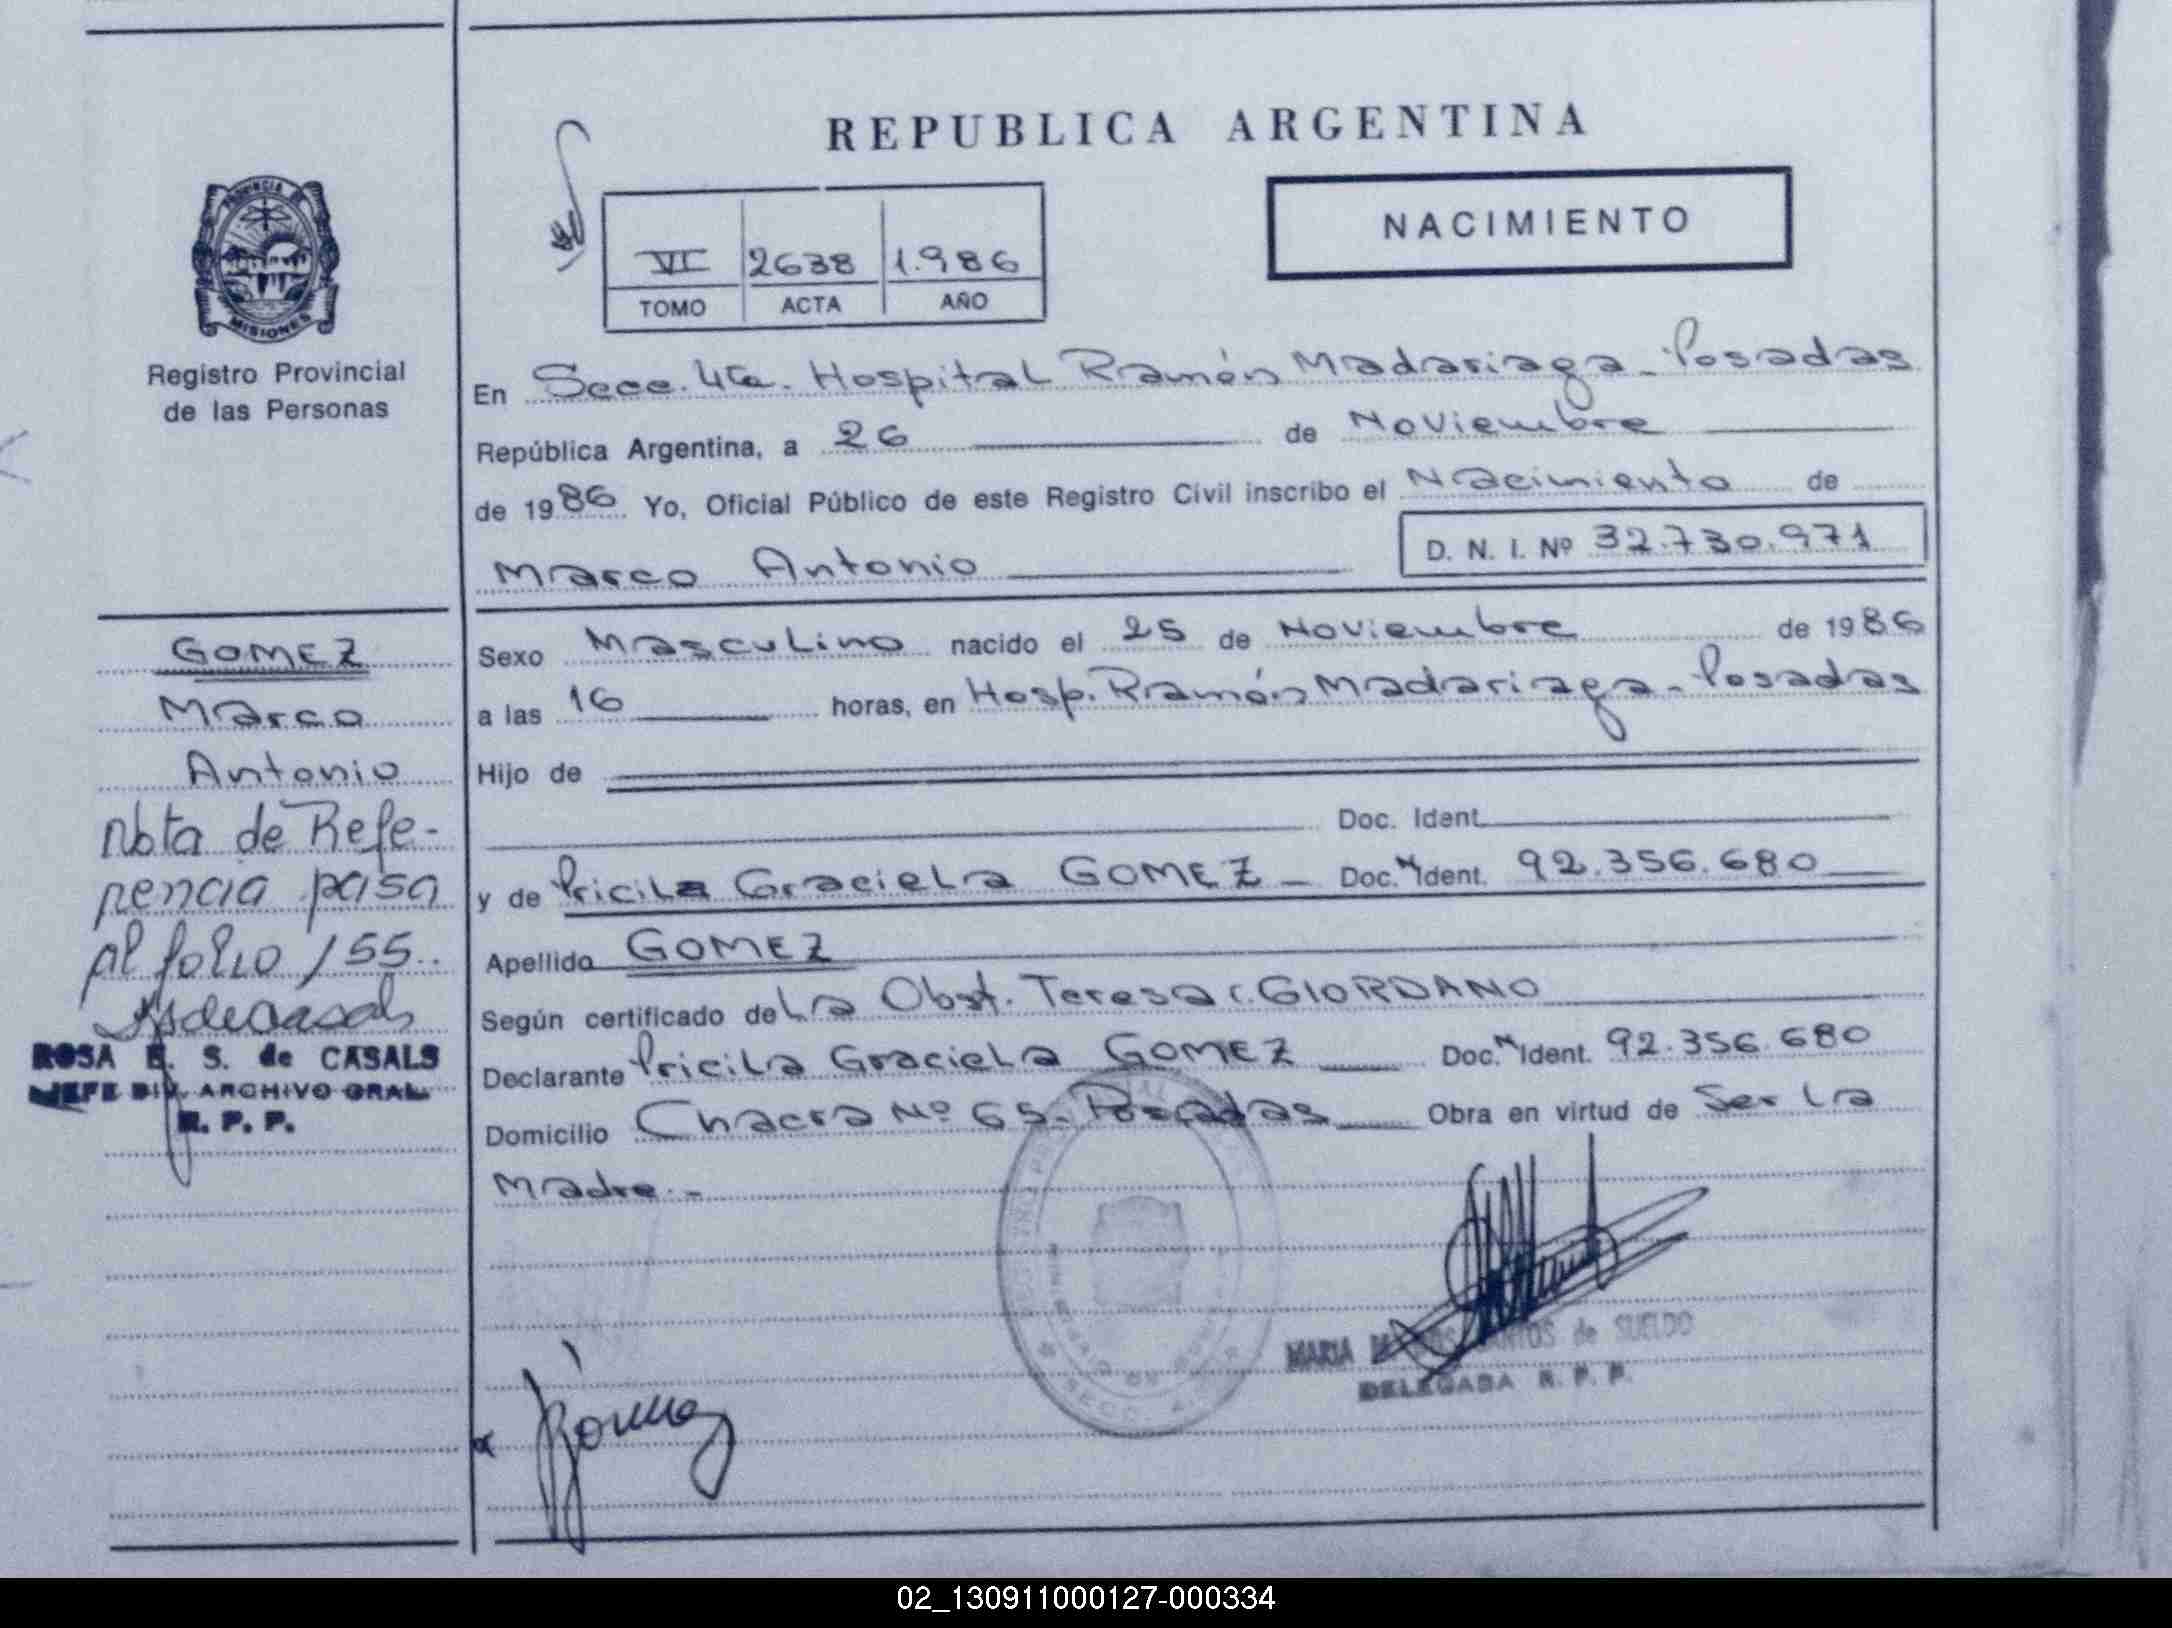 REPUBLICA ARGENTINA
NACIMIENTO
VI 2638 1.986
TOMO ACTA AÑO
PROVINCIA DE
MISIONES
Registro Provincial
de las Personas
En Secc. 4ta. Hospital Ramón Madariaga - Posadas
República Argentina, a 26 de Noviembre
de 1986 Yo, Oficial Público de este Registro Civil inscribo el Nacimiento de
Marco Antonio D. N. I. Nº 32.730.971
Sexo Masculino nacido el 25 de Noviembre de 1986
a las 16 horas, en Hosp. Ramón Madariaga - Posadas
Hijo de
Doc. Ident.
y de Pricila Graciela GOMEZ - Doc. Ident. 92.356.680
Apellido GOMEZ
Según certificado de La Obst. Teresa C. GIORDANO
Declarante Pricila Graciela GOMEZ Doc. Ident. 92.356.680
Domicilio Chacra Nº 65 - Posadas Obra en virtud de Ser La
Madre.-
GOMEZ
Marco
Antonio
Nota de Refe-
rencia pasa
al folio 155.
ROSA E. S. de CASALS
JEFE DIV. ARCHIVO GRAL.
R. P. P.
MARIA DE LOS SANTOS de SUELDO
DELEGADA R. P. P.
02_130911000127-000334